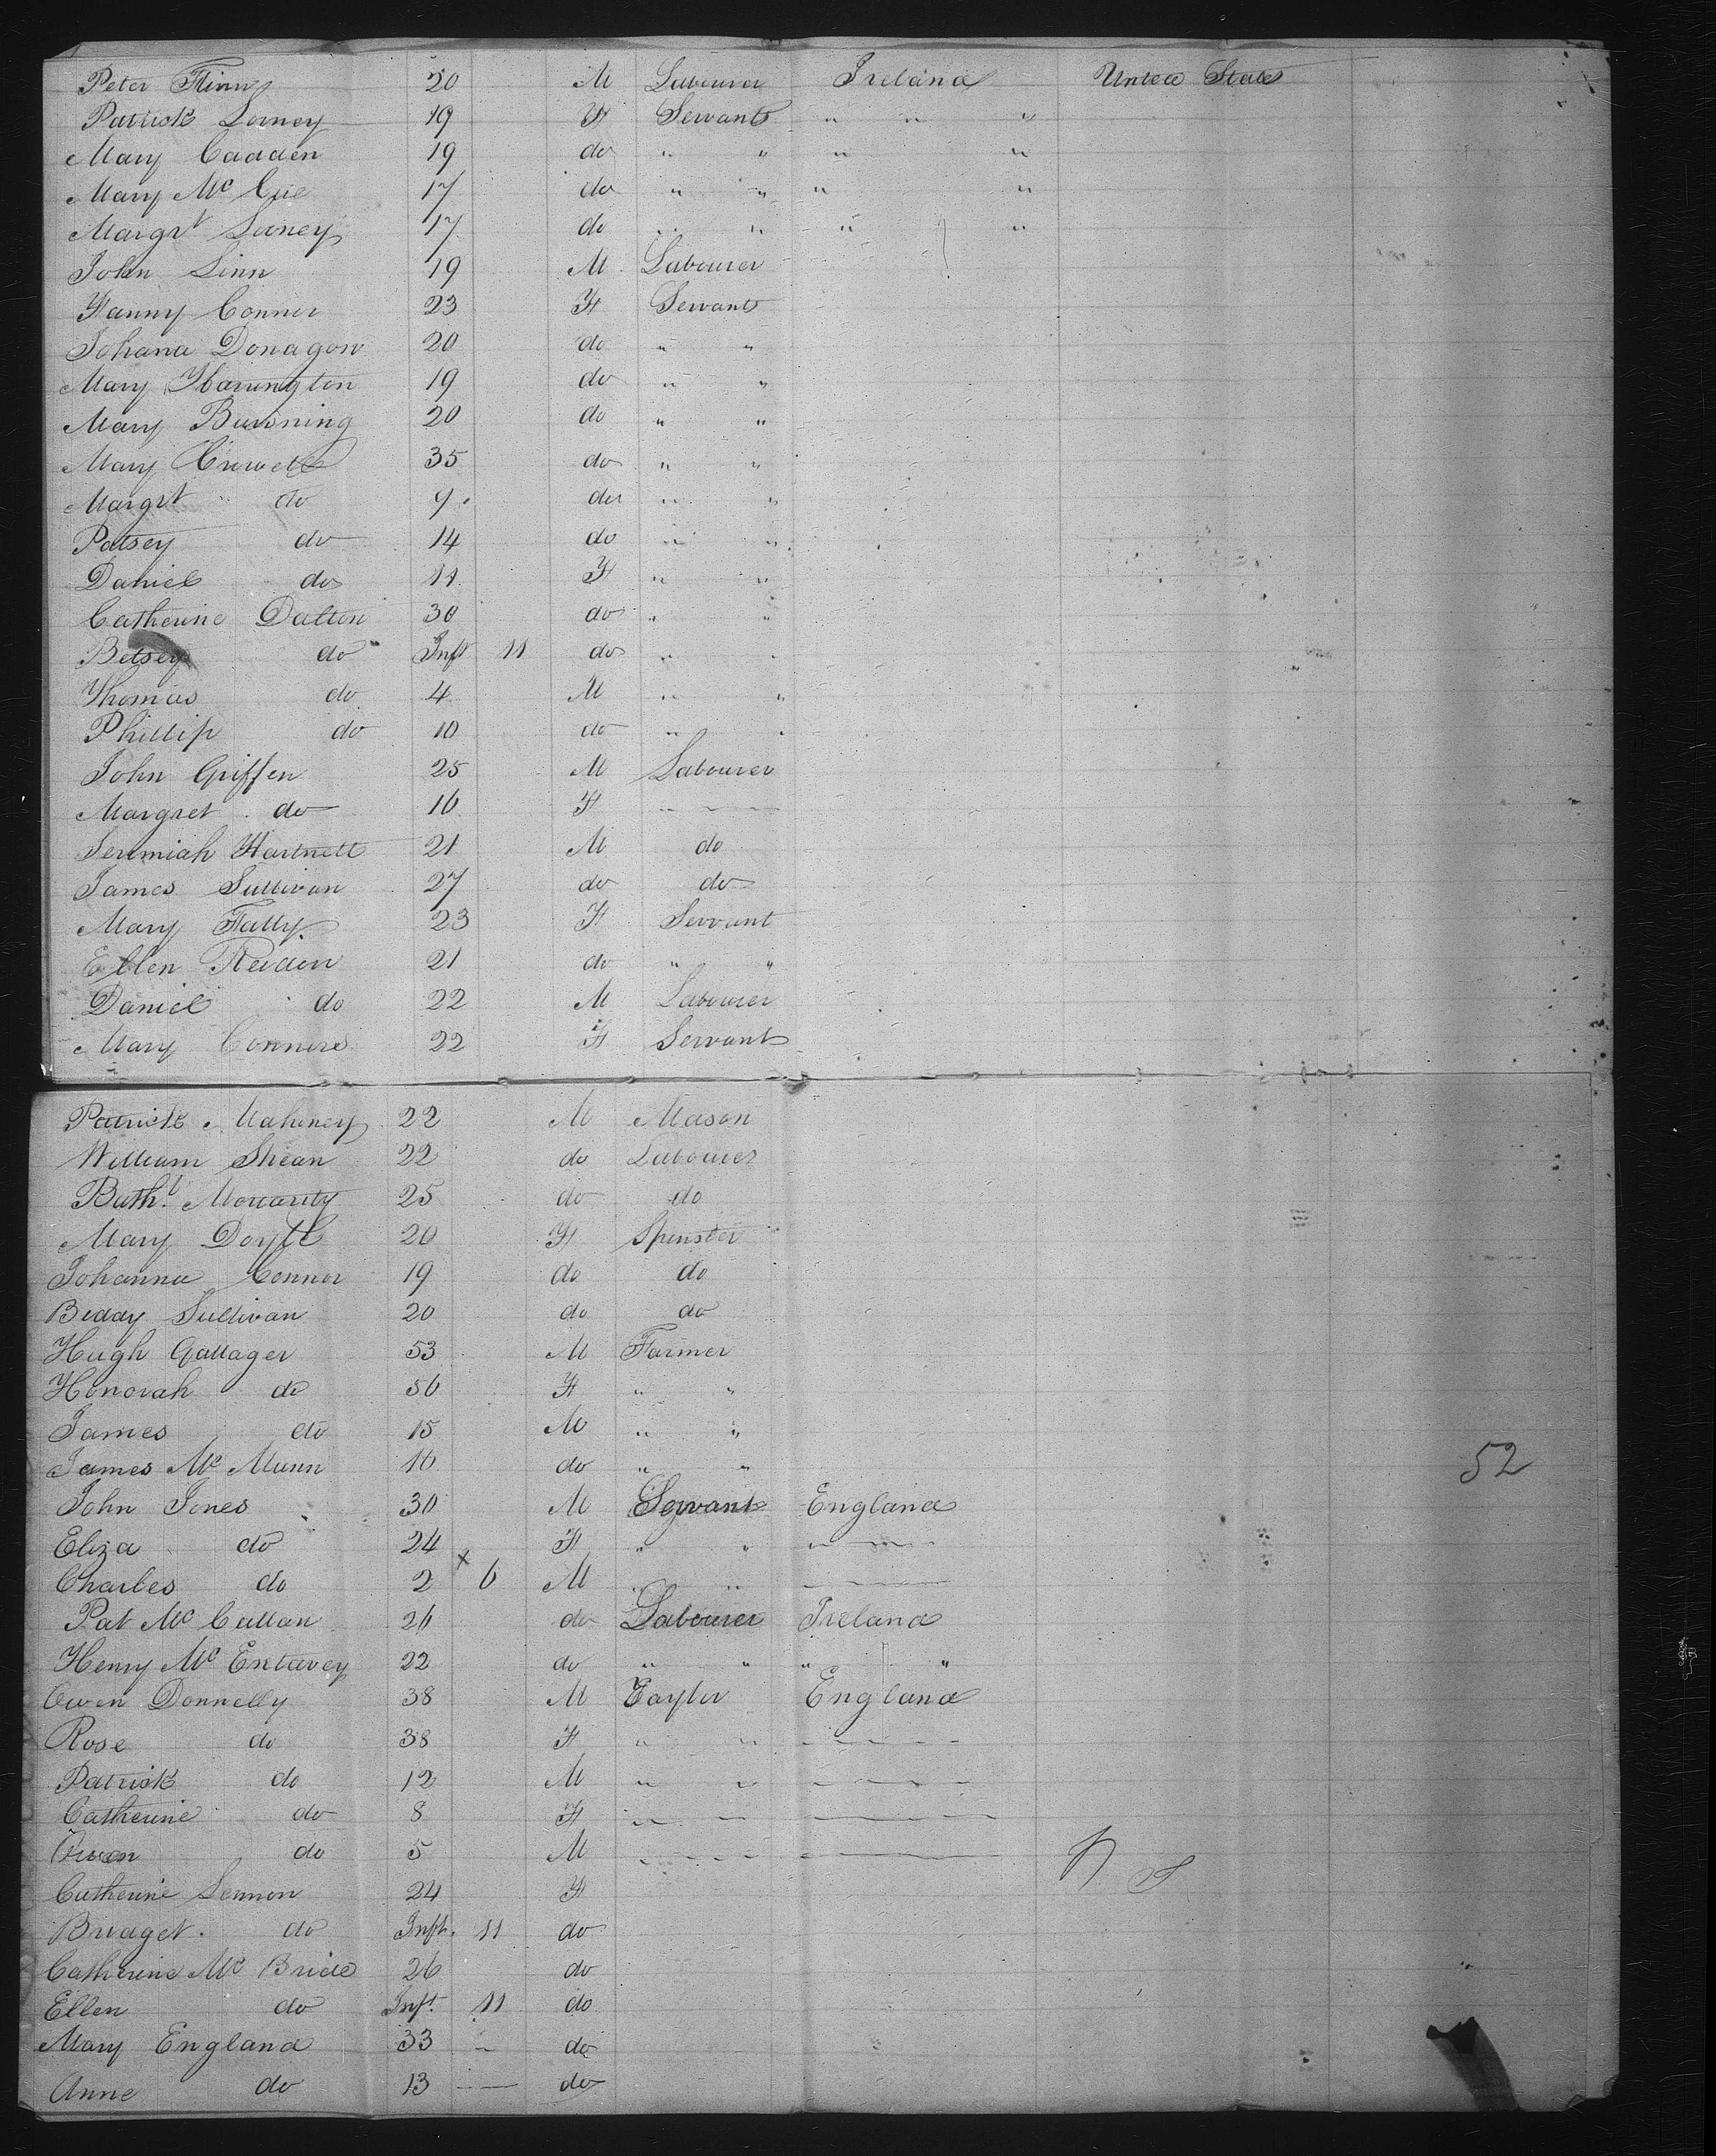 Peter Flinn 20 M Labourer Ireland United States
Patrick Looney 19 F Servant " " "
Mary Cadden 19 do " " " "
Mary Mc Cue 17 do " " " "
Margrt Looney 17 do " " " "
John Linn 19 M Labourer
Fanny Conner 23 F Servant
Johana Donagow 20 do " "
Mary Harrington 19 do " "
Mary Burning 20 do " "
Mary 35 do " "
Margrt do 9 do " "
Patsey do 14 do " "
Daniel do 11 F " "
Catherine Dalton 30 do " "
Betsey do Inft 11 do "
Thomas do 4 M " "
Phillip do 10 do "
John Griffen 25 M Labourer
Margret do 16 F
Jerimiah Hartnett 21 M do
James Sullivan 27 do do
Mary Tally 23 F Servant
Ellen Reiden 21 do " "
Daniel do 22 M Labourer
Mary Connors 22 F Servant
Patrick Mahoney 22 M Mason
William Shean 22 do Labourer
Barth. Moriarity 25 do do
Mary Doyle 20 F Spinster
Johanna Connor 19 do do
Biddy Sullivan 20 do do
Hugh Gallager 53 M Farmer
Honorah do 56 F " "
James do 15 M " "
James Mc Munn 16 do " " 52
John Jones 30 M Servant England
Eliza do 24 F " "
Charles do 2 x 6 M " "
Pat Mc Cullan 26 do Labourer Ireland
Henry Mc Entavey 22 do " " " "
Owen Donnelly 38 M Taylor England
Rose do 38 F " "
Patrick do 12 M " "
Catherine do 8 F " "
Owen do 5 M
Catherine Lennon 24 F
Bridget do Inft. 11 do
Catherine Mc Bride 26 do
Ellen do Inft. 11 do
Mary England 33 do
Anne do 13 do